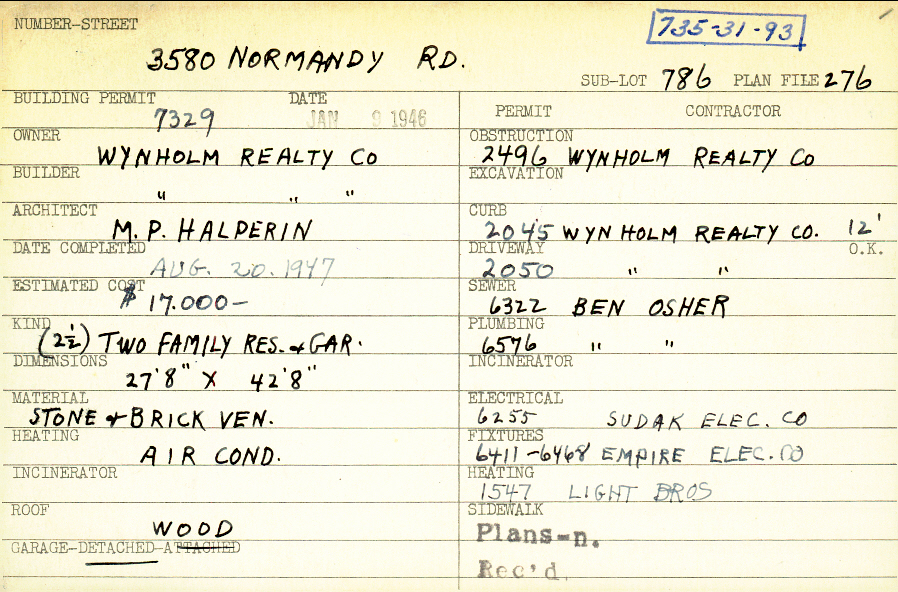 NUMBER-STREET
735-31-93
3580 NORMANDY RD.
SUB-LOT 786 PLAN FILE 276
BUILDING PERMIT DATE
7329 JAN 9 1946
OWNER
WYNHOLM REALTY CO
BUILDER
" " "
ARCHITECT
M.P. HALPERIN
DATE COMPLETED
AUG. 20. 1947
ESTIMATED COST
$ 17.000-
KIND
(2½) TWO FAMILY RES. & GAR.
DIMENSIONS
27'8" X 42'8"
MATERIAL
STONE & BRICK VEN.
HEATING
AIR COND.
INCINERATOR
ROOF
WOOD
GARAGE-DETACHED-ATTACHED
PERMIT CONTRACTOR
OBSTRUCTION
2496 WYNHOLM REALTY CO
EXCAVATION
CURB
2045 WYNHOLM REALTY CO. 12'
DRIVEWAY O.K.
2050 " "
SEWER
6322 BEN OSHER
PLUMBING
6576 " "
INCINERATOR
ELECTRICAL
6255 SUDAK ELEC. CO
FIXTURES
6411-6468 EMPIRE ELEC. CO
HEATING
1547 LIGHT BROS
SIDEWALK
Plans-n.
Rec'd.